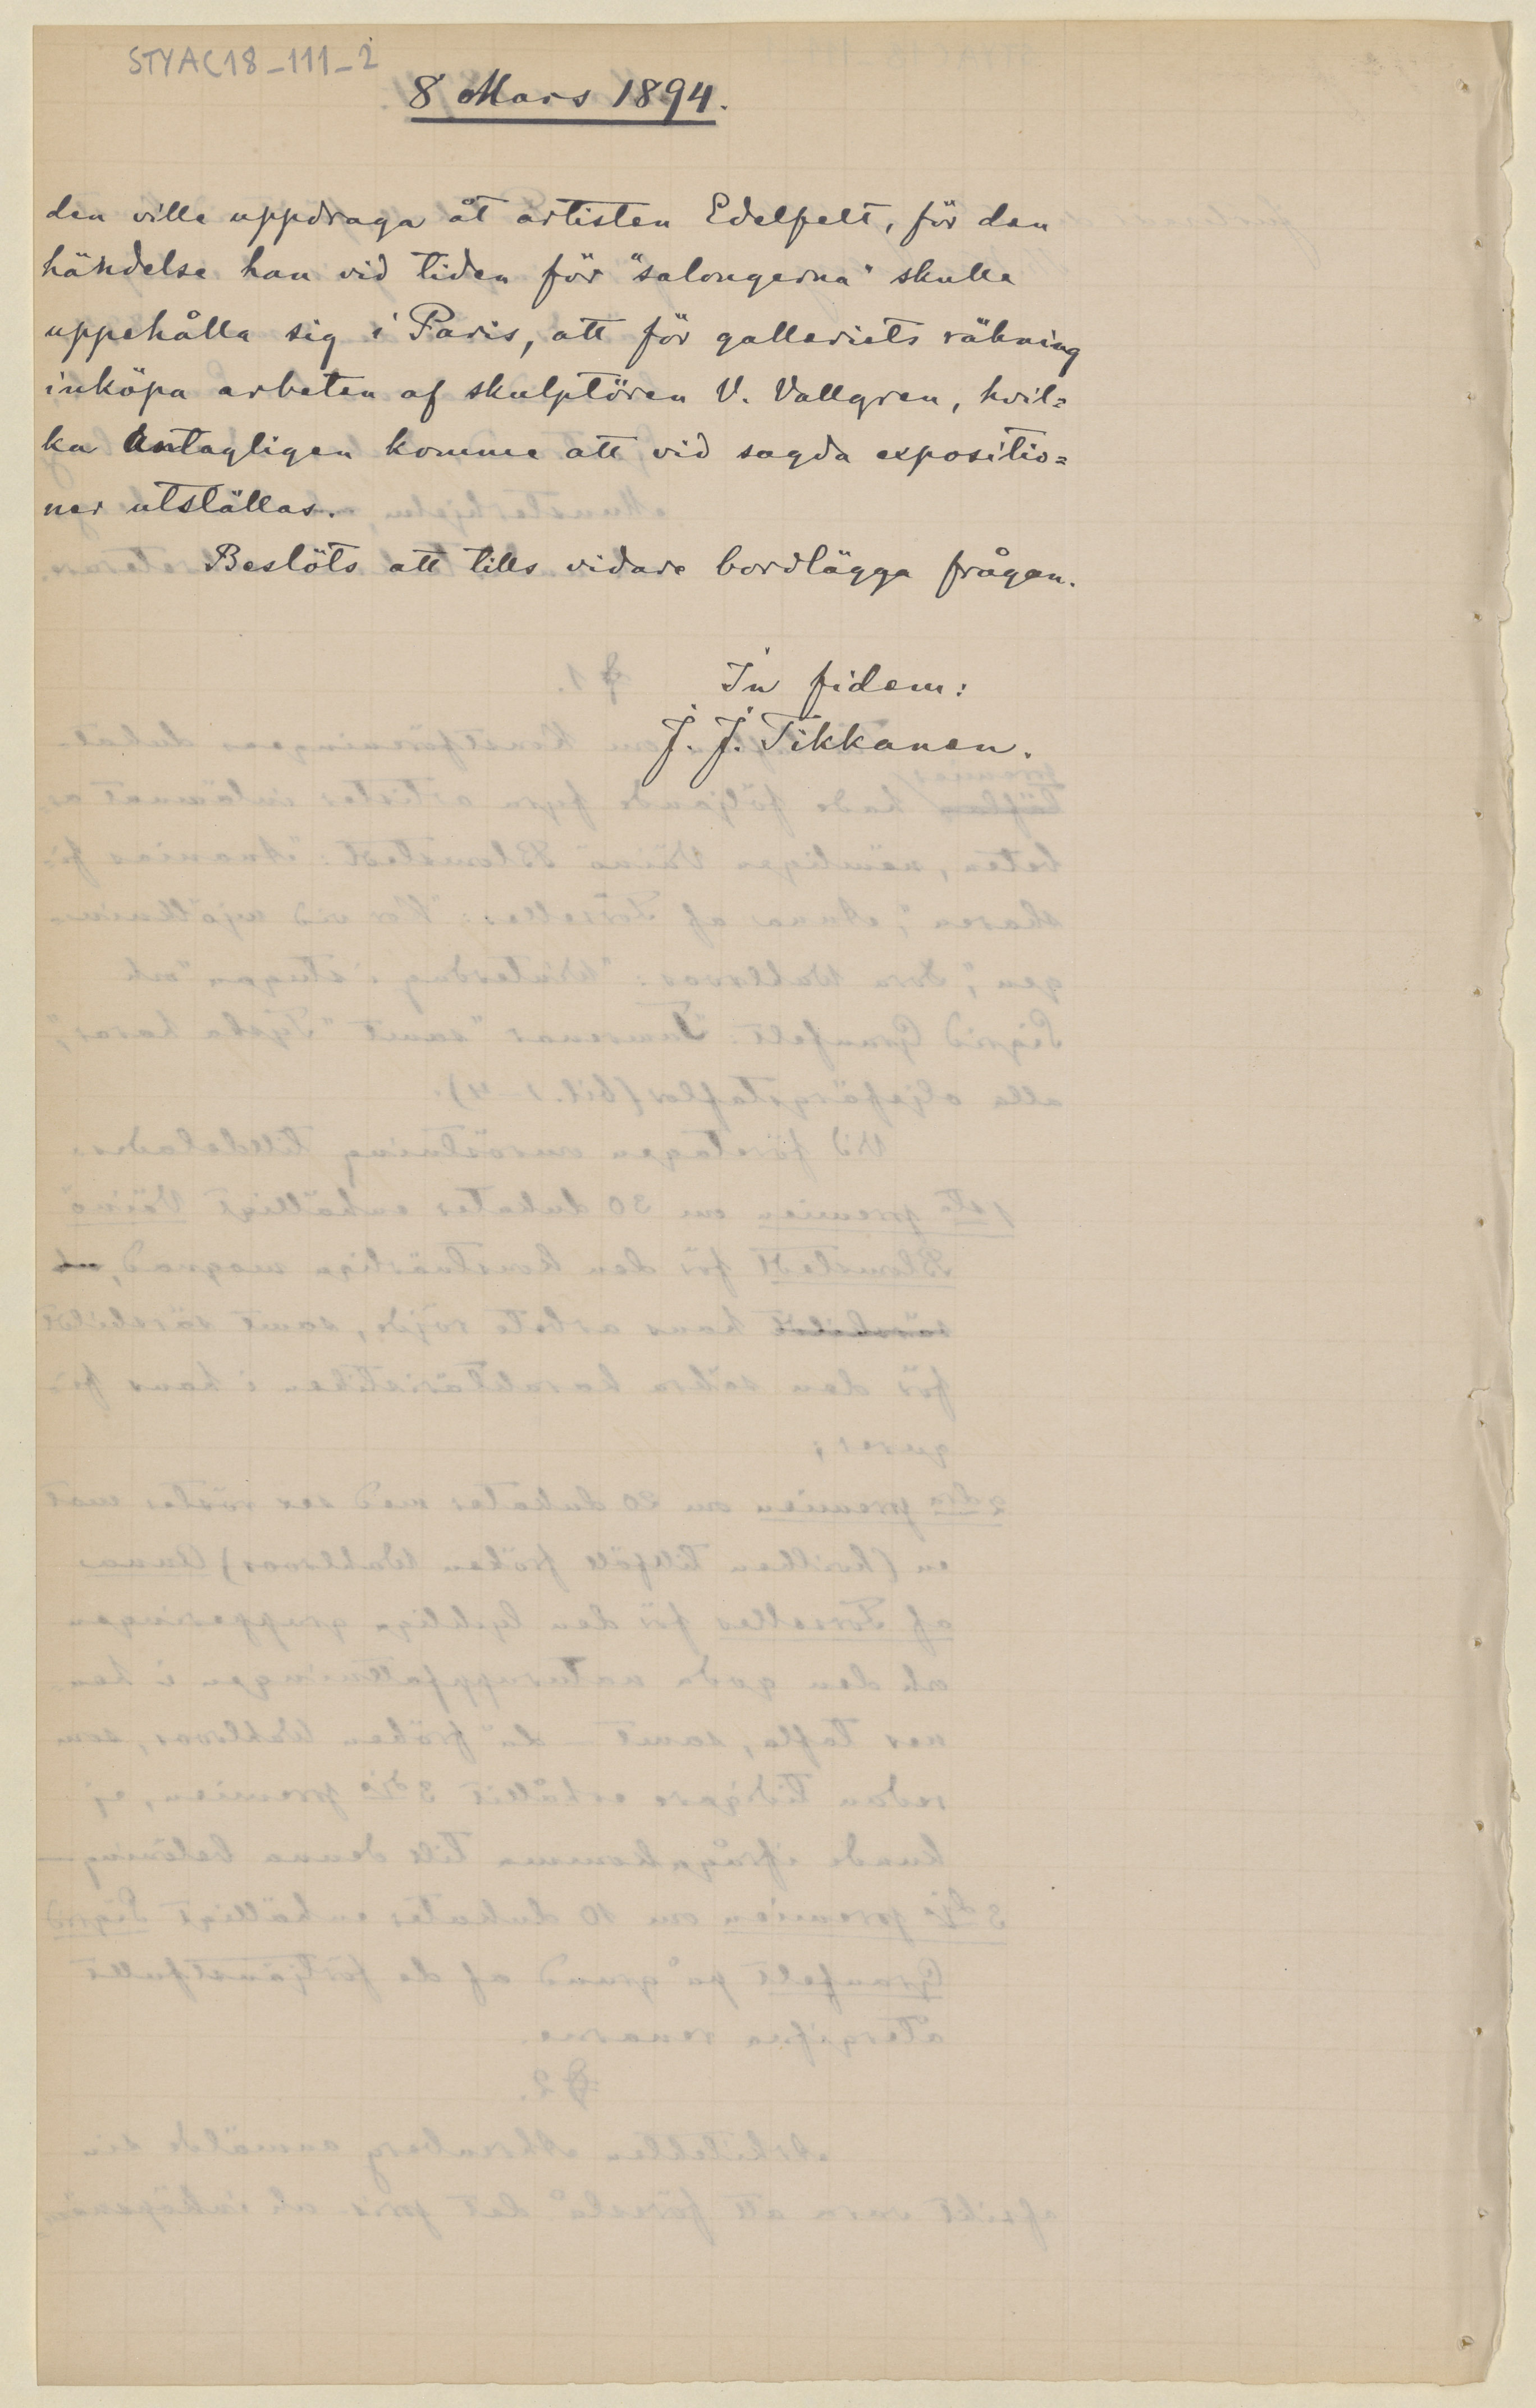 STYAC18_111_2
8 Mars 1894.
den ville uppdraga åt artisten Edelfelt, för den
händelse han vid tiden för "salongerna" skulle
uppehålla sig i Paris, att för galleriets räkning
inköpa arbeten af skulptören V. Vallgren, hvil=
ka antagligen komme att vid sagda expositio=
ner utställas.
Beslöts att tills vidare bordlägga frågan.
In fidem:
J. J. Tikkanen.